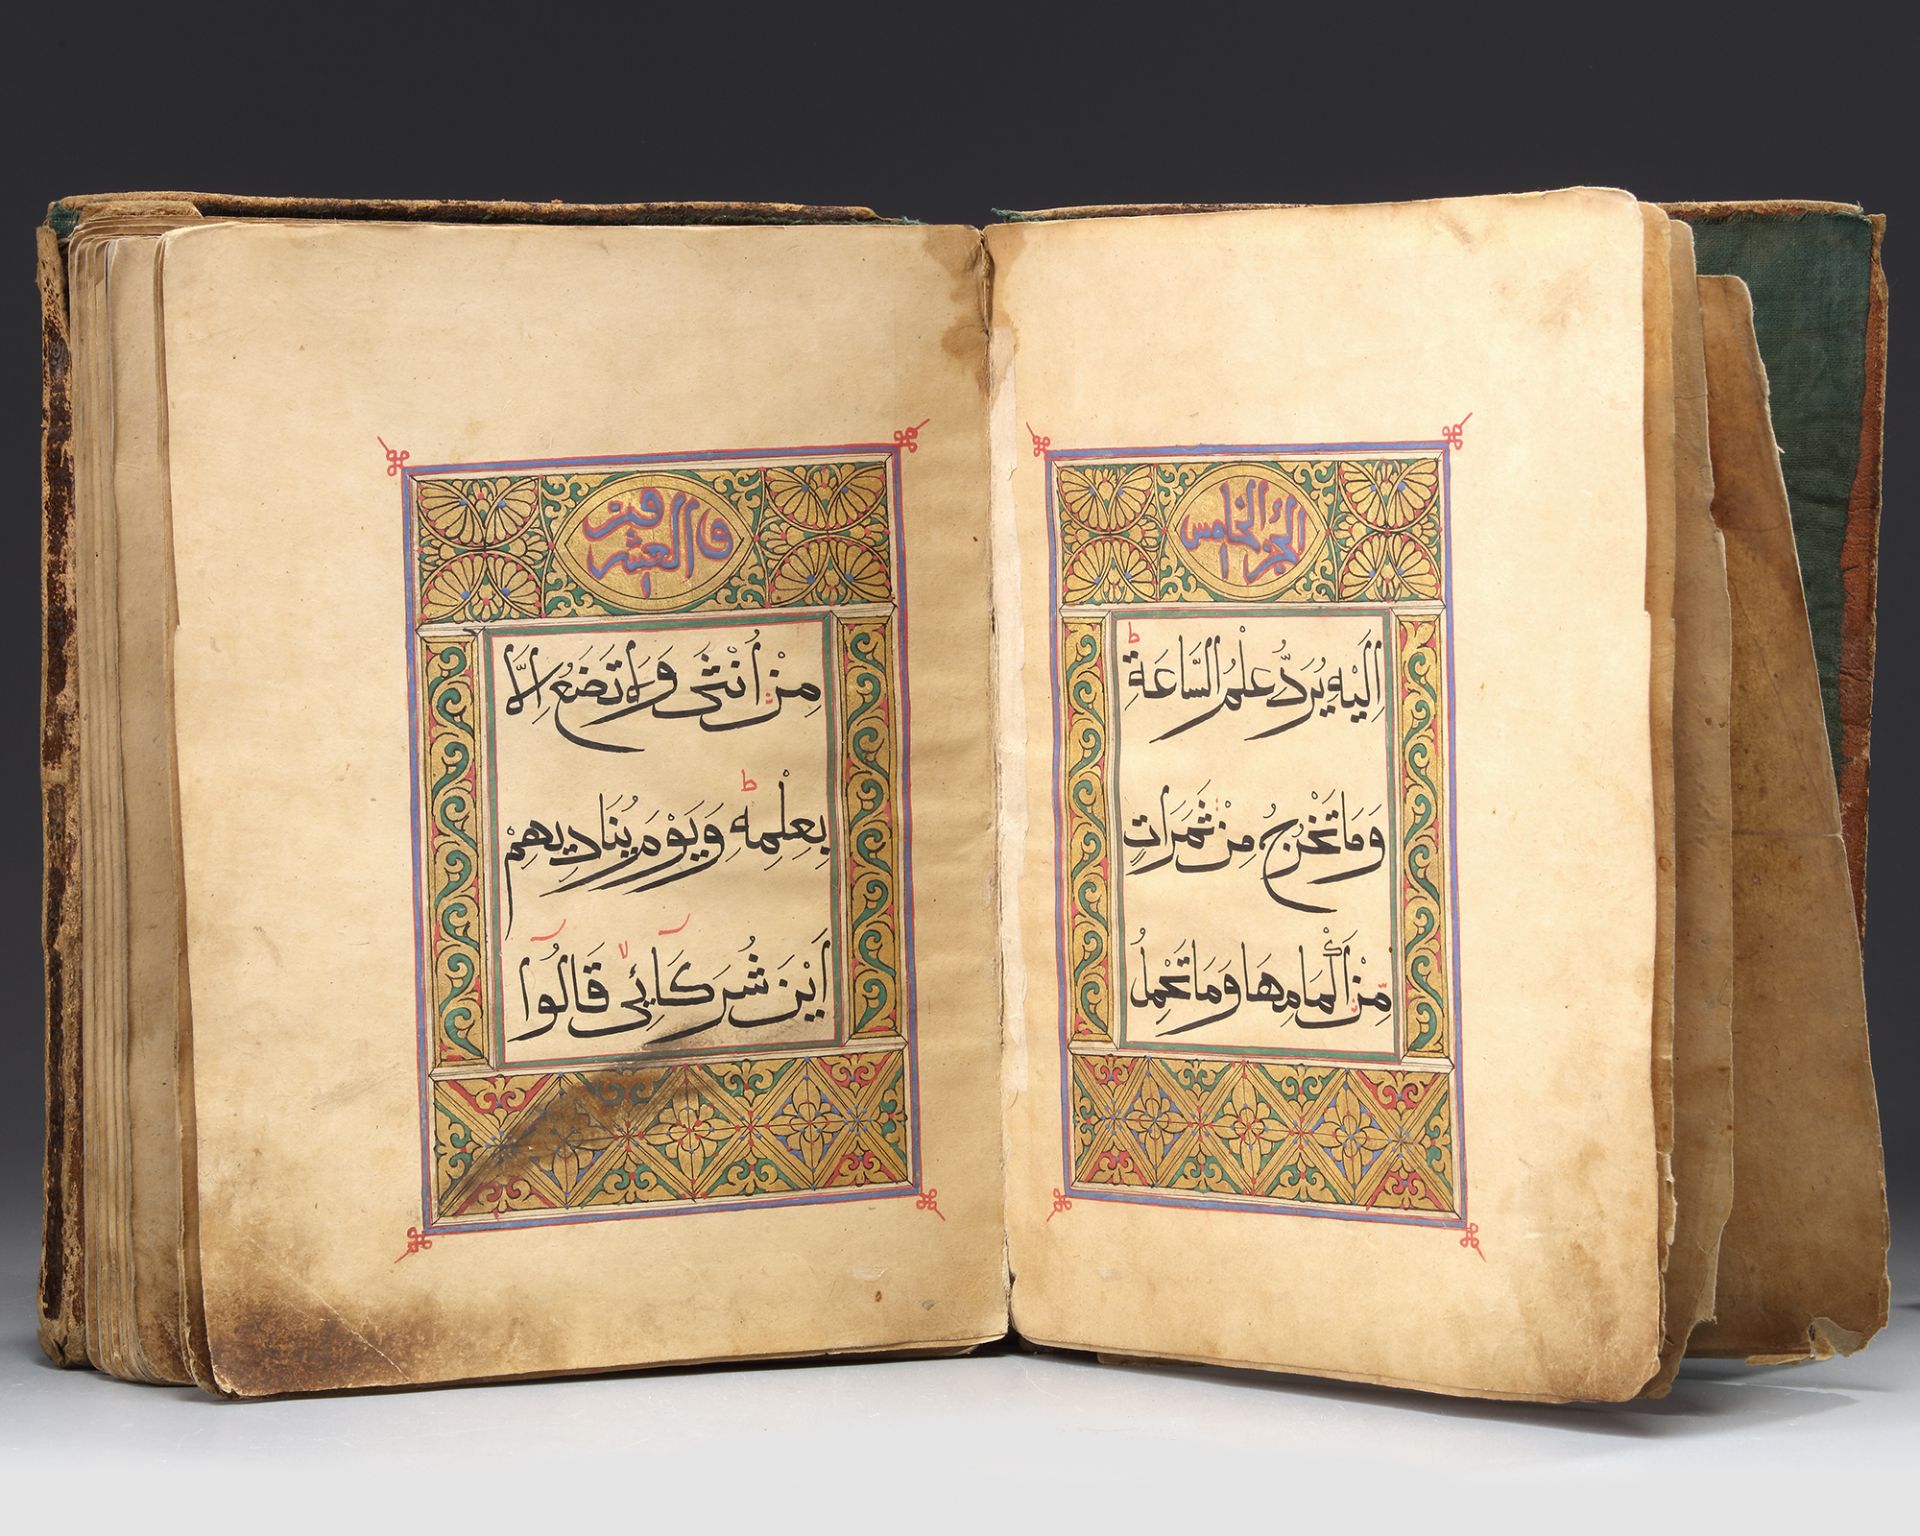 الجزء
الخامس
اِلَيْهِ يُرَدُّ عِلْمُ السَّاعَةِ ط
وَمَا تَخْرُجُ مِنْ ثَمَرَاتٍ
مِنْ اَكْمَامِهَا وَمَا تَحْمِلُ
والعشرين
مِنْ اُنْثٰى وَلَا تَضَعُ اِلَّا
بِعِلْمِهٖ ط وَيَوْمَ يُنَادِيهِمْ
اَيْنَ شُرَكَآئِىْ قَالُوٓا